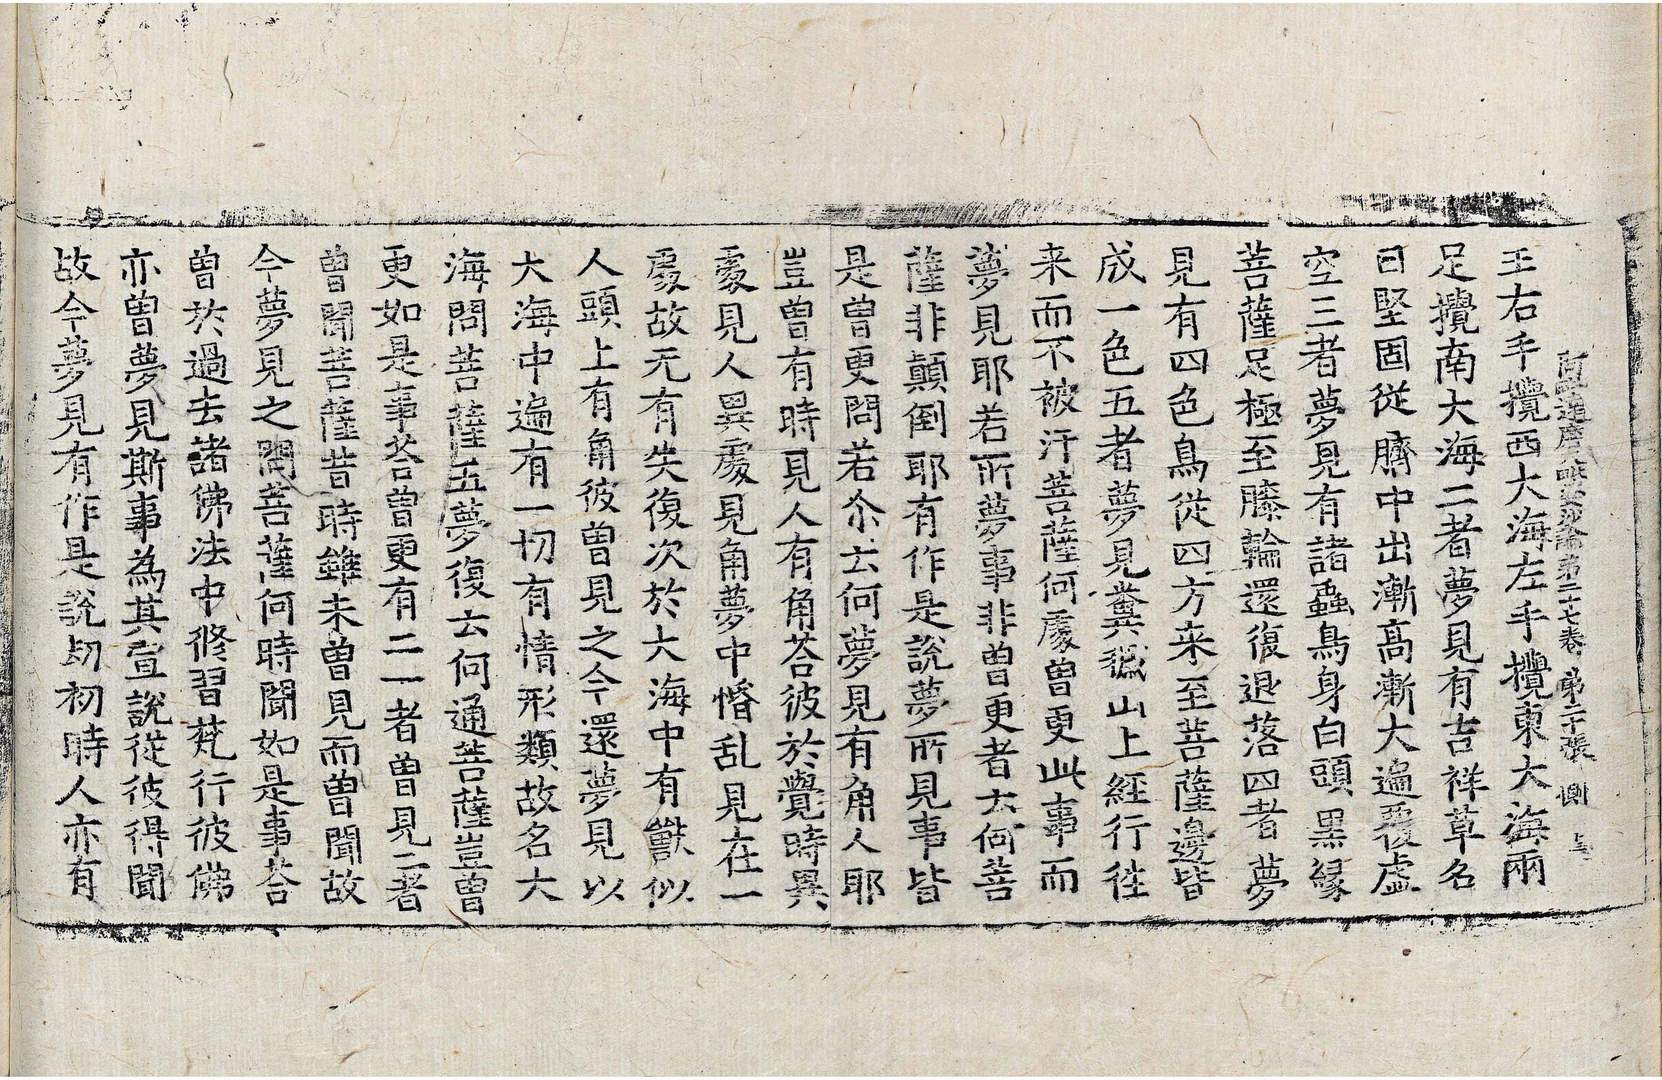 阿毗達磨大毗婆沙論第三十七卷 第二十張 惻
王右手攪西大海左手攪東大海兩
足攪南大海二者夢見有吉祥草名
曰堅固從臍中出漸高漸大遍覆虛
空三者夢見有諸蟲鳥身白頭黑緣
菩薩足極至膝輪還復退落四者夢
見有四色鳥從四方来至菩薩邊皆
成一色五者夢見糞穢山上經行往
来而不被汙菩薩何處曾更此事而
夢見耶若所夢事非曾更者去何菩
薩非顛倒耶有作是說夢所見事皆
是曾更問若尒去何夢見有角人耶
豈曾有時見人有角荅彼於覺時異
處見人異處見角夢中惛乱見在一
處故无有失復次於大海中有獸似
人頭上有角彼曾見之今還夢見以
大海中遍有一切有情形類故名大
海問菩薩五夢復去何通菩薩豈曾
更如是事荅曾更有二一者曾見二者
曾聞菩薩昔時雖未曾見而曾聞故
今夢見之問菩薩何時聞如是事荅
曾於過去諸佛法中修習梵行彼佛
亦曾夢見斯事為其宣說從彼得聞
故今夢見有作是說刧初時人亦有